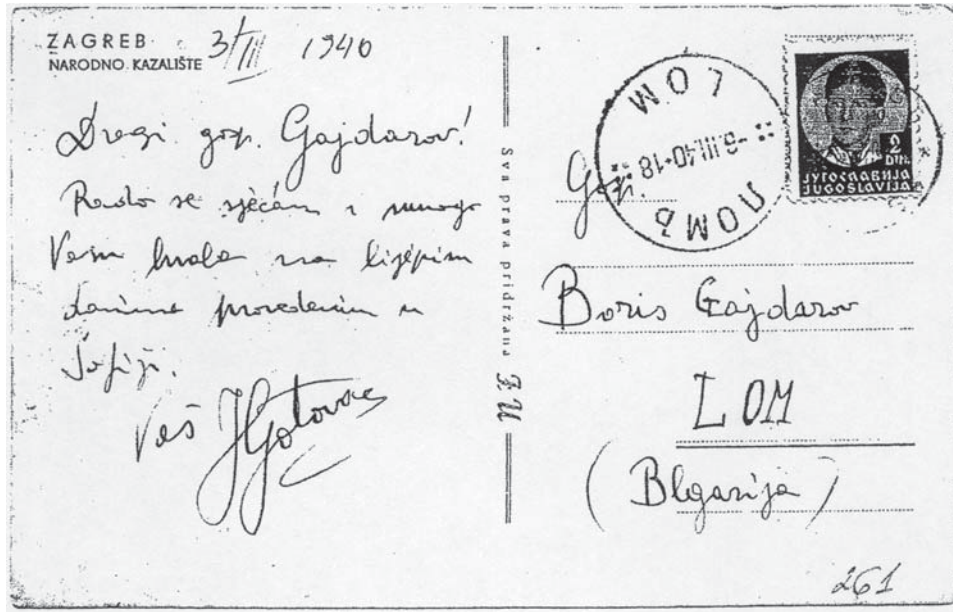 ZAGREB
NARODNO KAZALIŠTE
3/III 1940
Dragi gosp. Gajdarov!
Rado se sjećam i mnogo
Vam hvala na lijepim
danima provedenim u
Sofiji.
Vaš JGotovac
Sva prava pridržana
LOM
-6.III.40-18
ЛОМЪ
2
DIN.
ЈУГОСЛАВИЈА
JUGOSLAVIJA
Boris Gajdarov
LOM
(Blgarija)
261